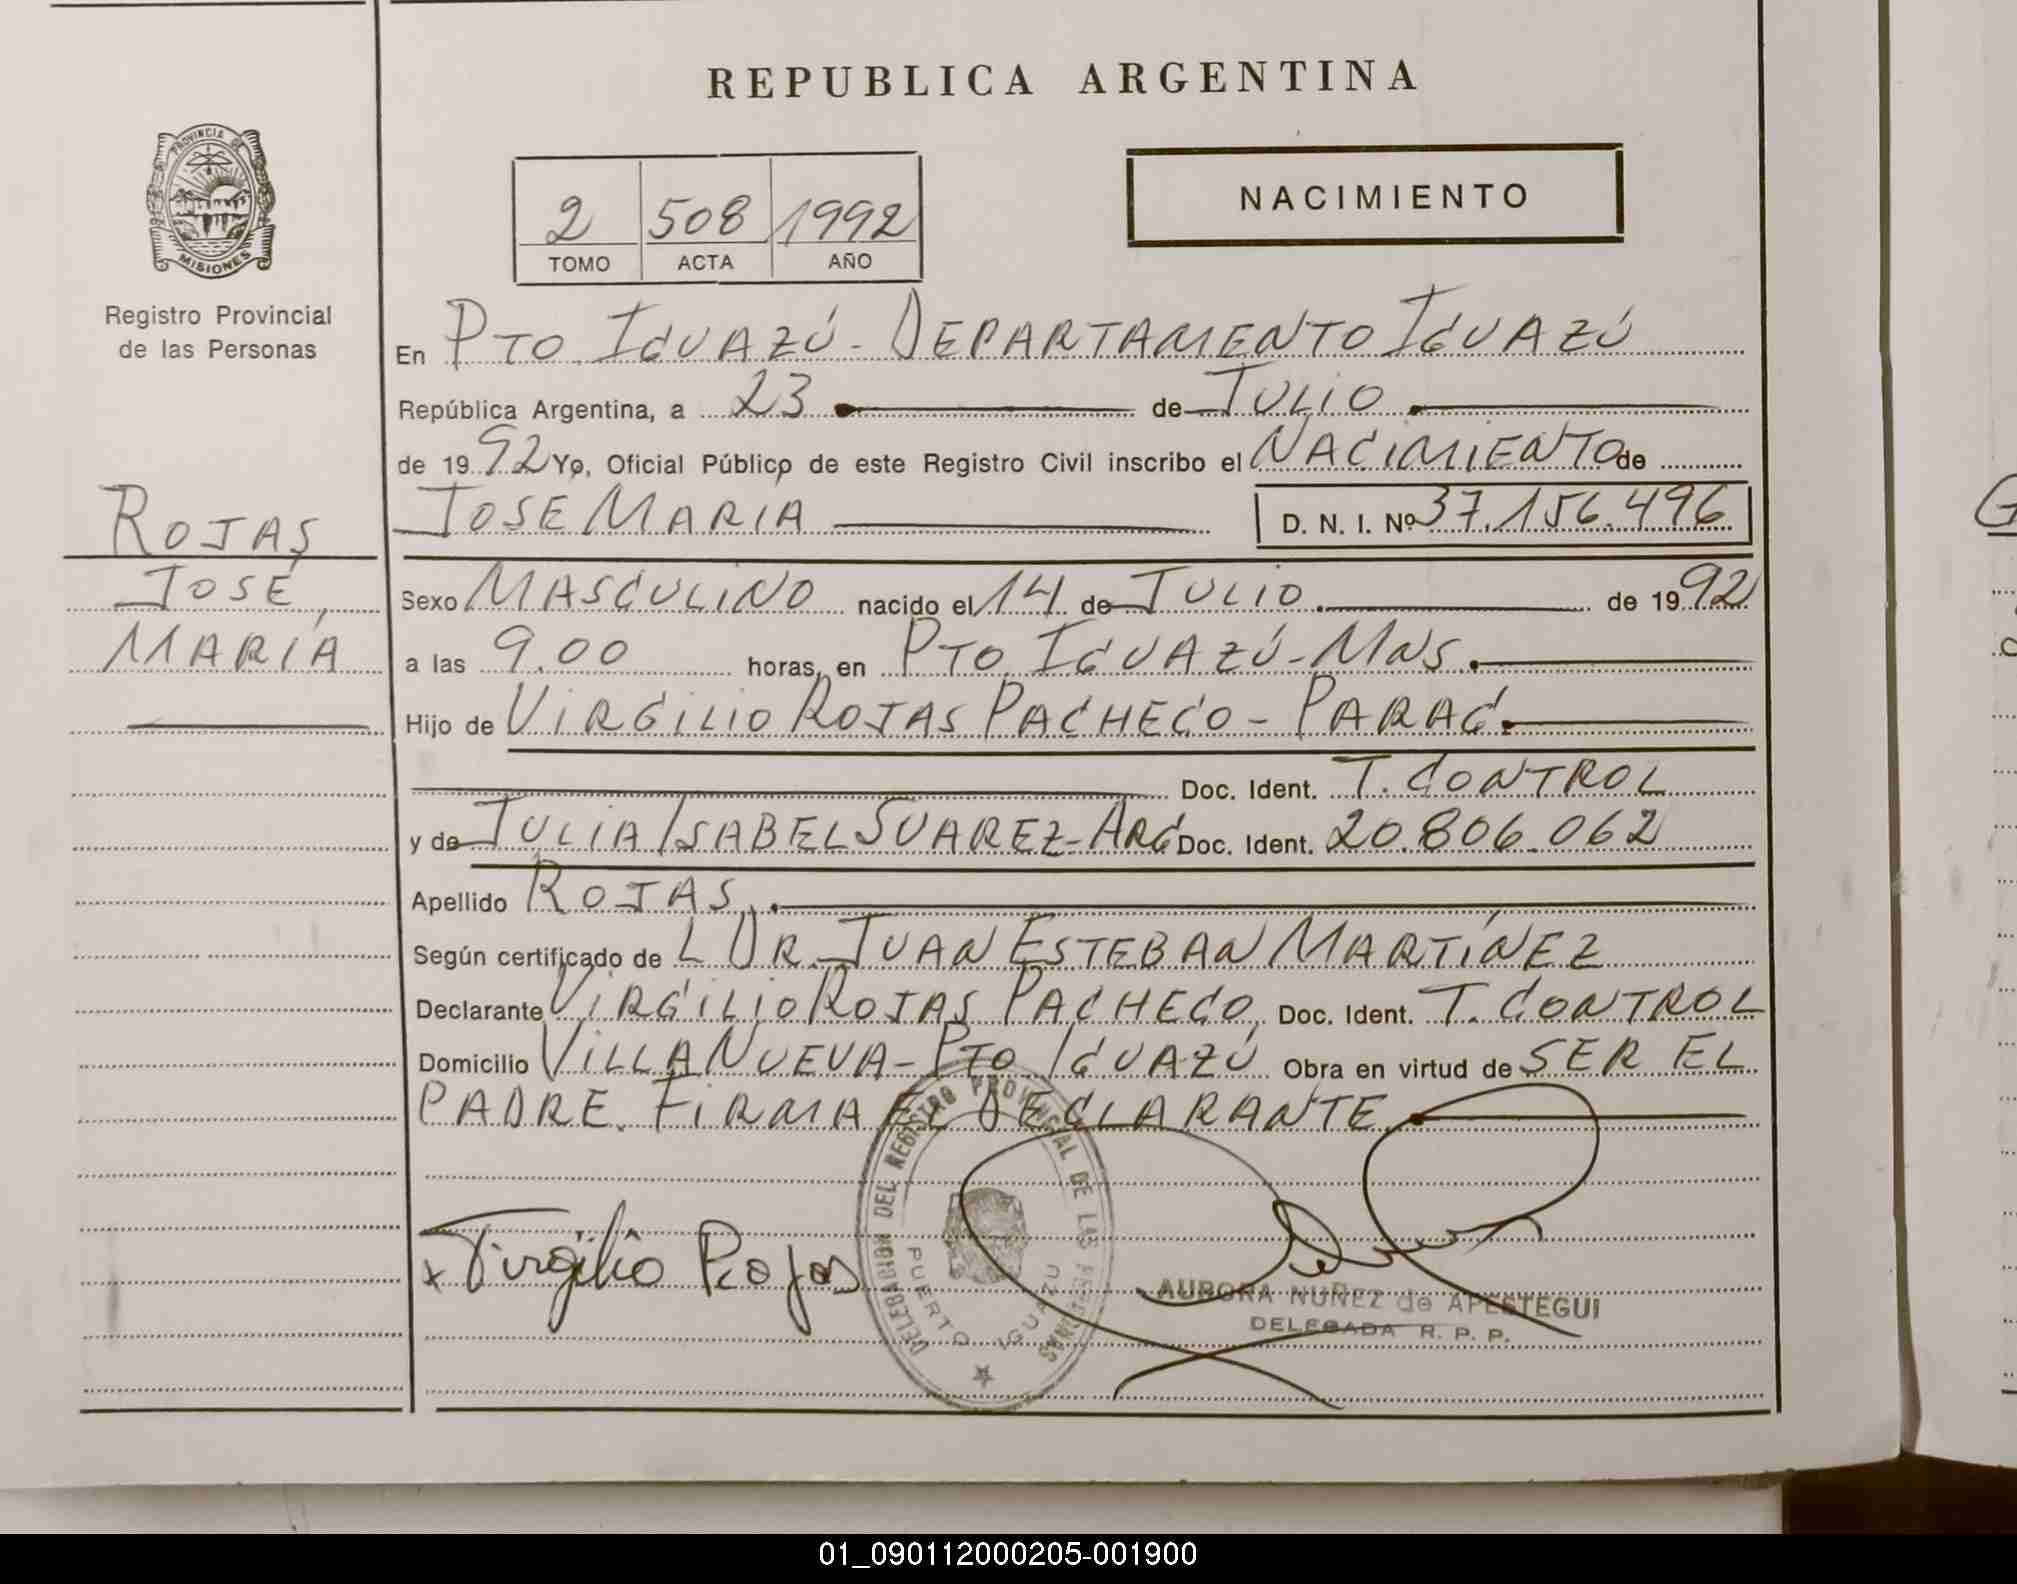 REPUBLICA ARGENTINA
PROVINCIA DE
MISIONES
Registro Provincial
de las Personas
2 508 1992
TOMO ACTA AÑO
NACIMIENTO
En PTO. IGUAZÚ - DEPARTAMENTO IGUAZÚ
República Argentina, a 23 de JULIO
de 1992 Yo, Oficial Público de este Registro Civil inscribo el NACIMIENTO de
JOSE MARIA D. N. I. Nº 37.156.496
ROJAS,
JOSÉ
MARÍA
Sexo MASCULINO nacido el 14 de JULIO de 1992
a las 9.00 horas, en PTO. IGUAZÚ - MNS.
Hijo de VIRGILIO ROJAS PACHECO - PARAG.
Doc. Ident. T. CONTROL
y de JULIA ISABEL SUAREZ - ARG Doc. Ident. 20.806.062
Apellido ROJAS
Según certificado de L DR. JUAN ESTEBAN MARTÍNEZ
Declarante VIRGILIO ROJAS PACHECO Doc. Ident. T. CONTROL
Domicilio VILLA NUEVA - PTO IGUAZÚ Obra en virtud de SER EL
PADRE. FIRMA EL DECLARANTE.
x Virgilio Rojas
DELEGACION DEL REGISTRO PROVINCIAL DE LAS PERSONAS
PUERTO IGUAZU
AURORA NUÑEZ de APESTEGUI
DELEGADA R. P. P.
01_090112000205-001900